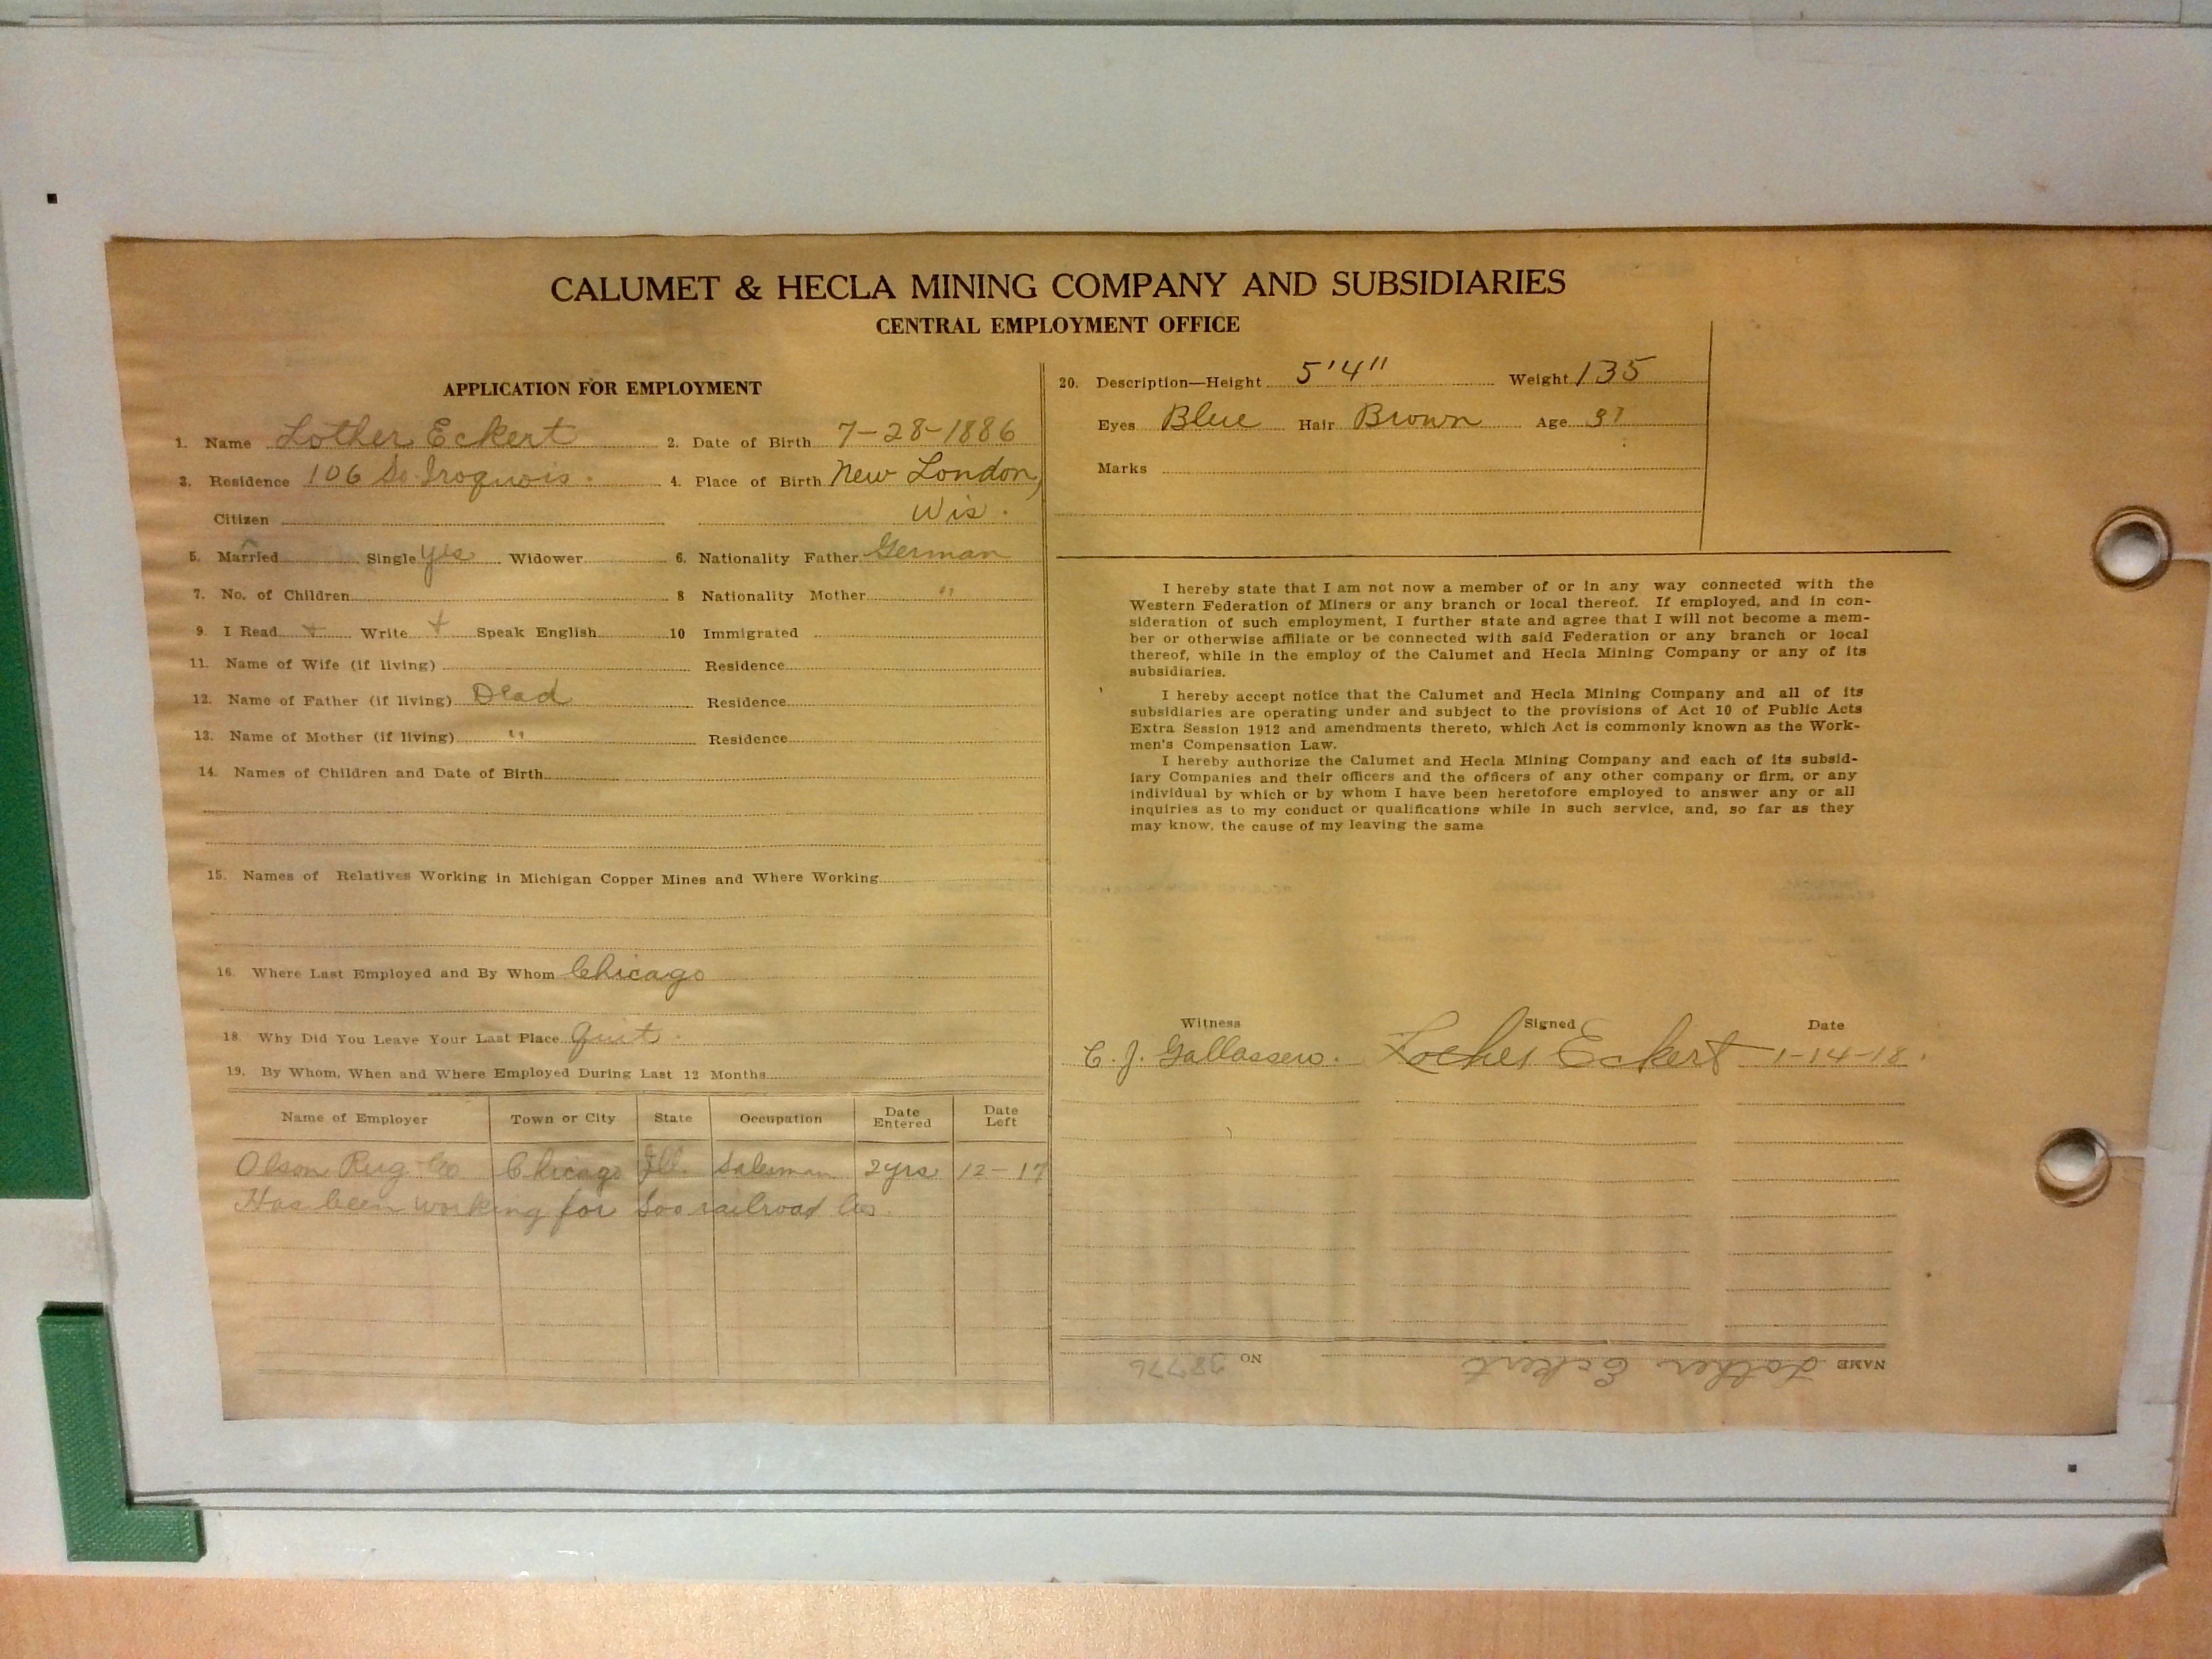 CALUMET & HECLA MINING COMPANY AND SUBSIDIARIES
CENTRAL EMPLOYMENT OFFICE
APPLICATION FOR EMPLOYMENT
1. Name Lother Eckert 2. Date of Birth 7-28-1886
3. Residence 106 So. Iroquois. 4. Place of Birth New London,
Citizen Wis.
5. Married Single yes Widower 6. Nationality Father German
7. No. of Children 8 Nationality Mother "
9. I Read + Write + Speak English 10 Immigrated
11. Name of Wife (if living) Residence
12. Name of Father (if living) Dead Residence
13. Name of Mother (if living) " Residence
14. Names of Children and Date of Birth
15. Names of Relatives Working in Michigan Copper Mines and Where Working
16. Where Last Employed and By Whom Chicago
18. Why Did You Leave Your Last Place Quit.
19. By Whom, When and Where Employed During Last 12 Months
Name of Employer Town or City State Occupation Date Entered Date Left
Olson Rug Co Chicago Ill. Salesman 2 yrs 12-17
Has been working for Soo railroad Co.
20. Description—Height 5'4" Weight 135
Eyes Blue Hair Brown Age 31
Marks
I hereby state that I am not now a member of or in any way connected with the
Western Federation of Miners or any branch or local thereof. If employed, and in con-
sideration of such employment, I further state and agree that I will not become a mem-
ber or otherwise affiliate or be connected with said Federation or any branch or local
thereof, while in the employ of the Calumet and Hecla Mining Company or any of its
subsidiaries.
I hereby accept notice that the Calumet and Hecla Mining Company and all of its
subsidiaries are operating under and subject to the provisions of Act 10 of Public Acts
Extra Session 1912 and amendments thereto, which Act is commonly known as the Work-
men's Compensation Law.
I hereby authorize the Calumet and Hecla Mining Company and each of its subsid-
iary Companies and their officers and the officers of any other company or firm, or any
individual by which or by whom I have been heretofore employed to answer any or all
inquiries as to my conduct or qualifications while in such service, and, so far as they
may know, the cause of my leaving the same
Witness Signed Date
C. J. Lother Eckert 1-14-18.
NAME Lother Eckert NO 38776